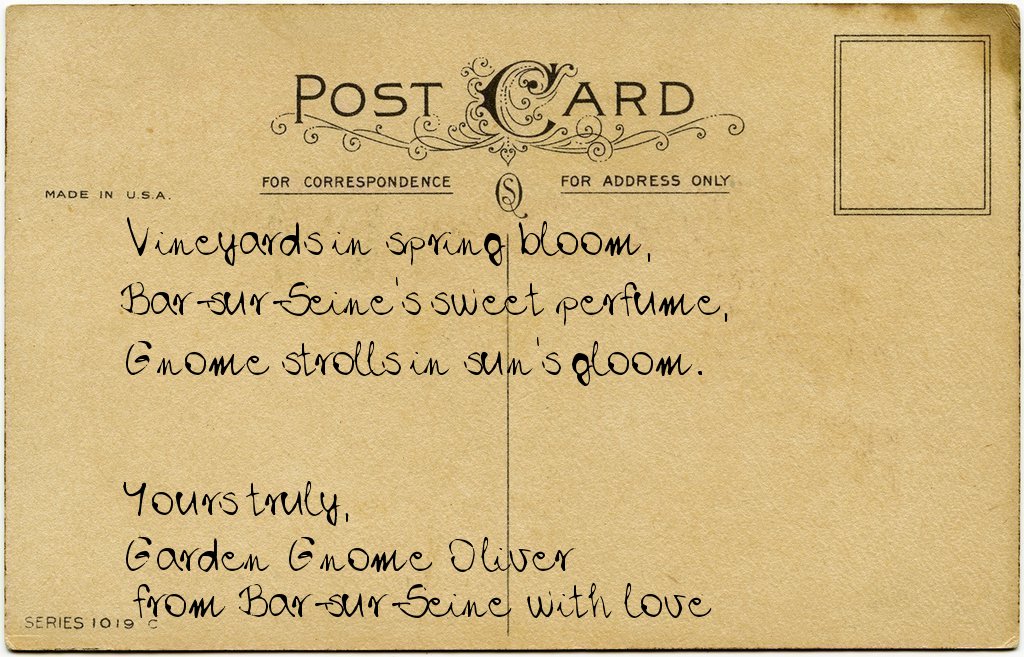 POST CARD
FOR CORRESPONDENCE
FOR ADDRESS ONLY
MADE IN U.S.A.
Vineyards in spring bloom,
Bar-sur-Seine's sweet perfume,
Gnome strolls in sun's gloom.
Yours truly,
Garden Gnome Oliver
from Bar-sur-Seine with love
SERIES 1019 C